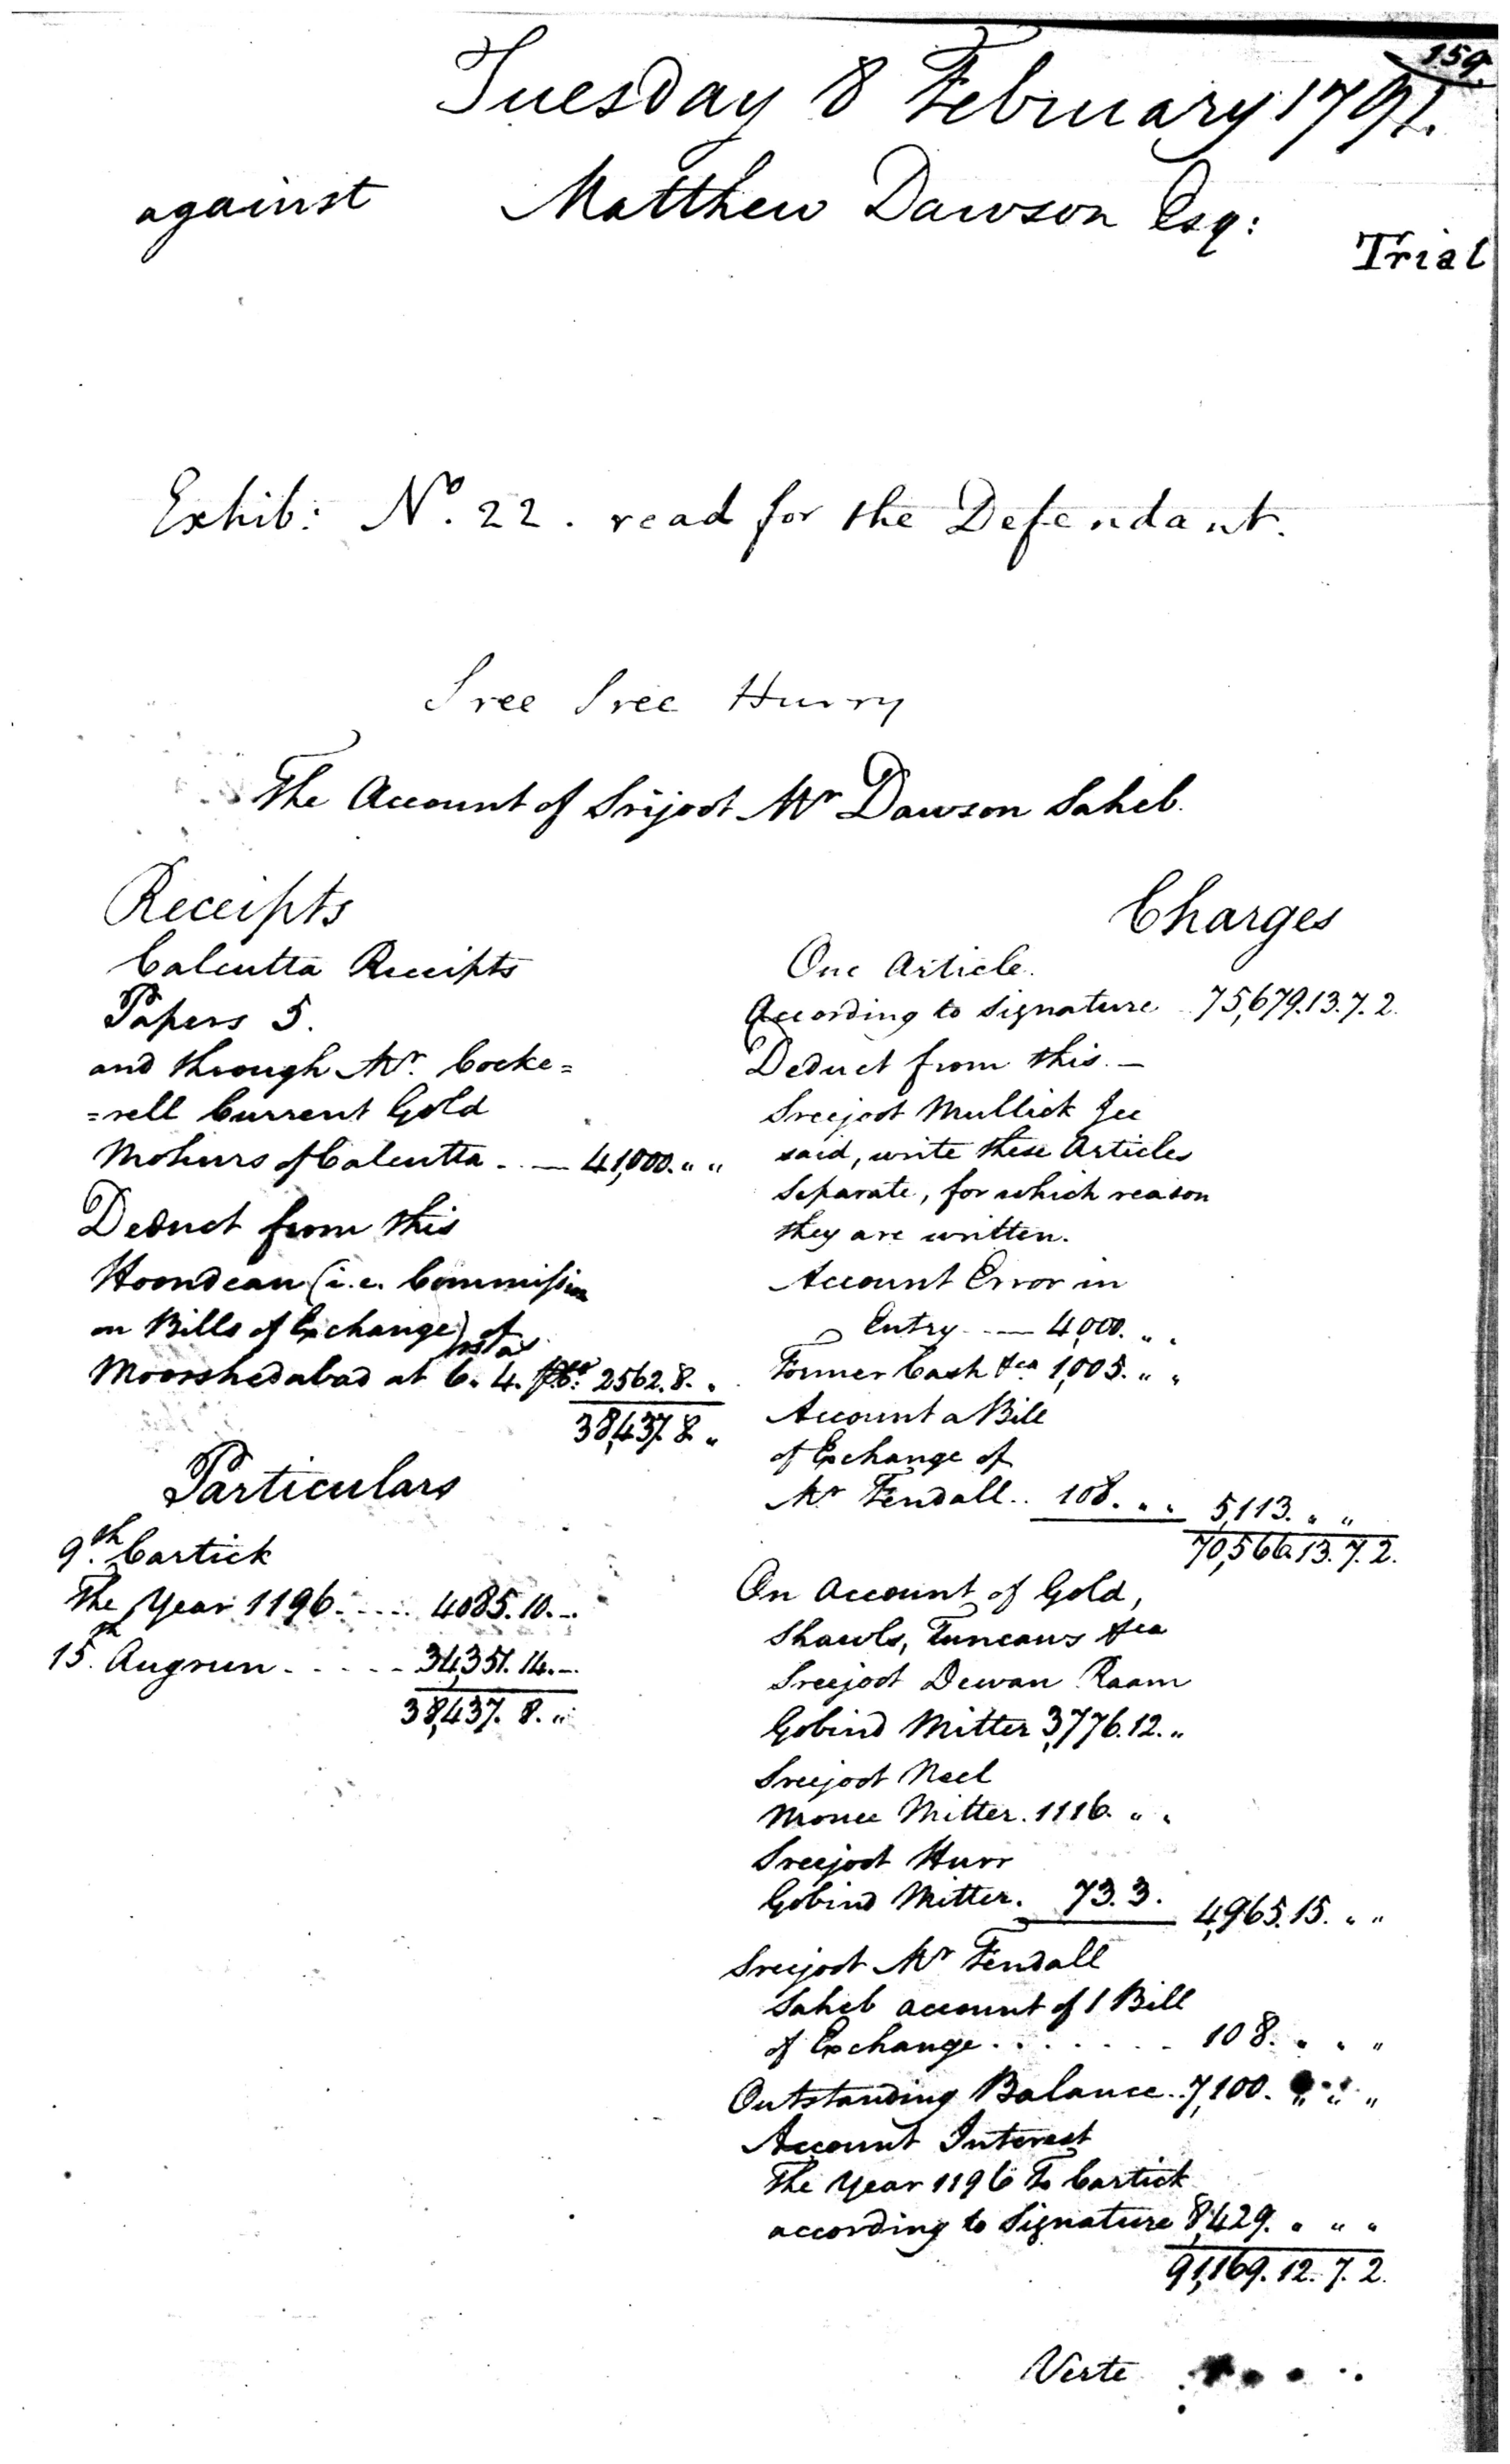 159.
Tuesday 8 February 1791.
against Matthew Dawson Esq:
Trial
Exhib: No. 22. read for the Defendant.
Sree Sree Hurry
The Account of Srijoot Mr Dawson Saheb.
Receipts
Calcutta Receipts
Papers 5.
and through Mr. Cocke=
=rell Current Gold
Mohurs of Calcutta . — 41,000. " "
Deduct from this
Hoondean (i.e. Commission
on Bills of Exchange) of
Moorshedabad at 6. 4. 2562. 8. "
38,437. 8 "
Particulars
9.th Cartick
The Year 1196 ..... 4085. 10. -
15.th Augrun ..... 34,351. 14. -
38,437. 8. "
Charges
One Article.
According to Signature 75,679. 13. 7. 2.
Deduct from this. —
Sreejoot Mullick Jee
said, write these Articles
separate, for which reason
they are written.
Account Error in
Entry — 4,000. " "
Former Cash &ca 1,005. " "
Account a Bill
of Exchange of
Mr Fendall .. 108. " " 5,113. " "
70,566. 13. 7. 2.
On Account of Gold,
Shawls, Tuncaws &ca
Sreejoot Dewan Raam
Gobind Mitter 3,776. 12. "
Sreejoot Neel
Monee Mitter. 1116. " "
Sreejoot Hurr
Gobind Mitter. 73. 3. 4,965. 15. " "
Sreejoot Mr Fendall
Saheb account of 1 Bill
of Exchange ....... 108. " " "
Outstanding Balance .. 7,100. " " "
Account Interest
The Year 1196 To Cartick
according to Signature 8,429. " " "
91,169. 12. 7. 2.
Verte